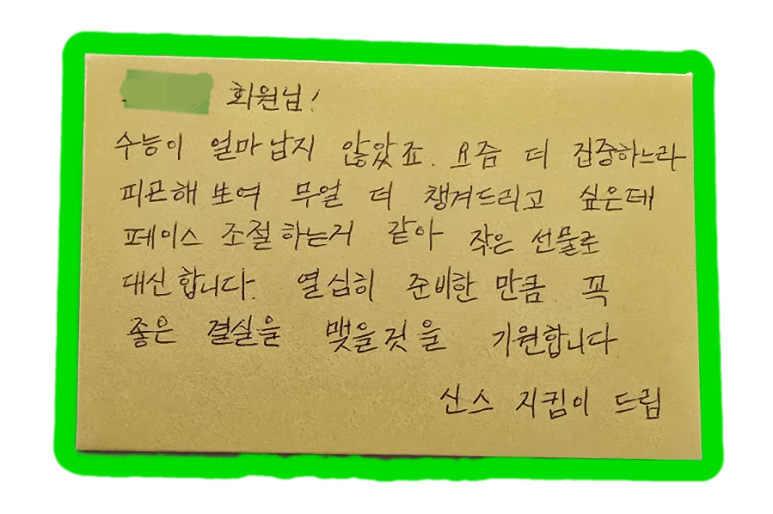 회원님!
수능이 얼마남지 않았죠. 요즘 더 집중하느라
피곤해 보여 무얼 더 챙겨드리고 싶은데
페이스 조절하는거 같아 작은 선물로
대신합니다. 열심히 준비한 만큼 꼭
좋은 결실을 맺을것을 기원합니다
신스 지킴이 드림